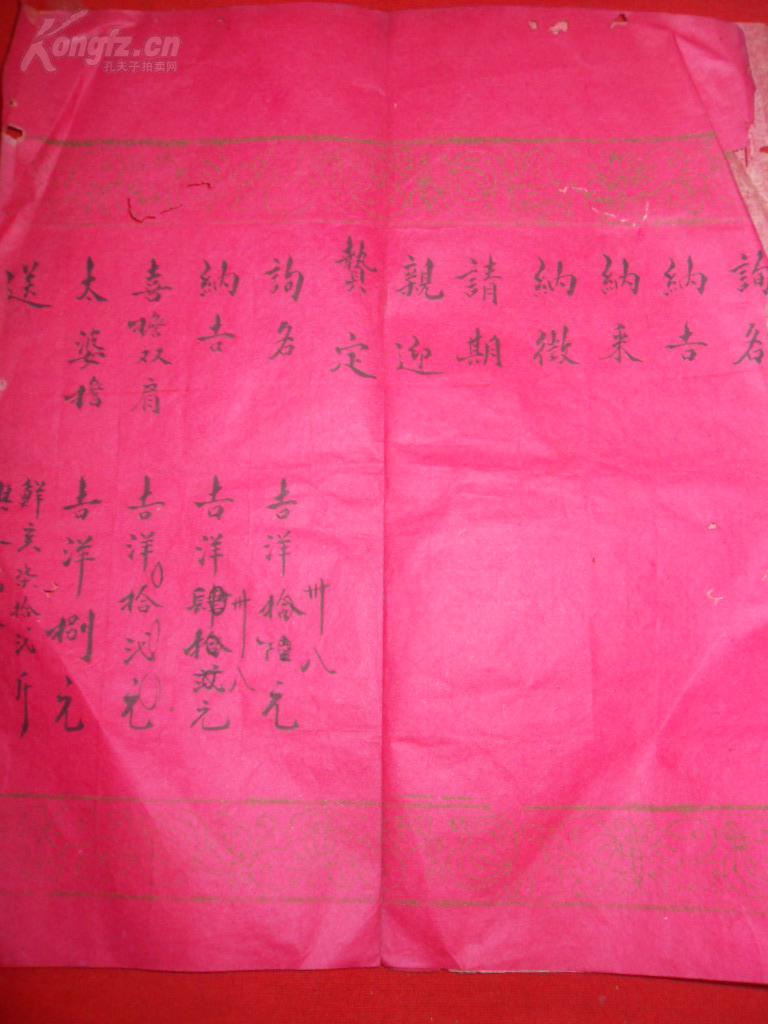 詢名
納吉
納采
納徵
請期
親迎
贄定
詢名 吉洋拾陸元
卅八
納吉 吉洋肆拾贰元
卅八
喜擔双肩 吉洋拾弍元
太婆擔 吉洋捌元
送 鮮亥柒拾弍斤
Kongfz.cn
孔夫子拍卖网